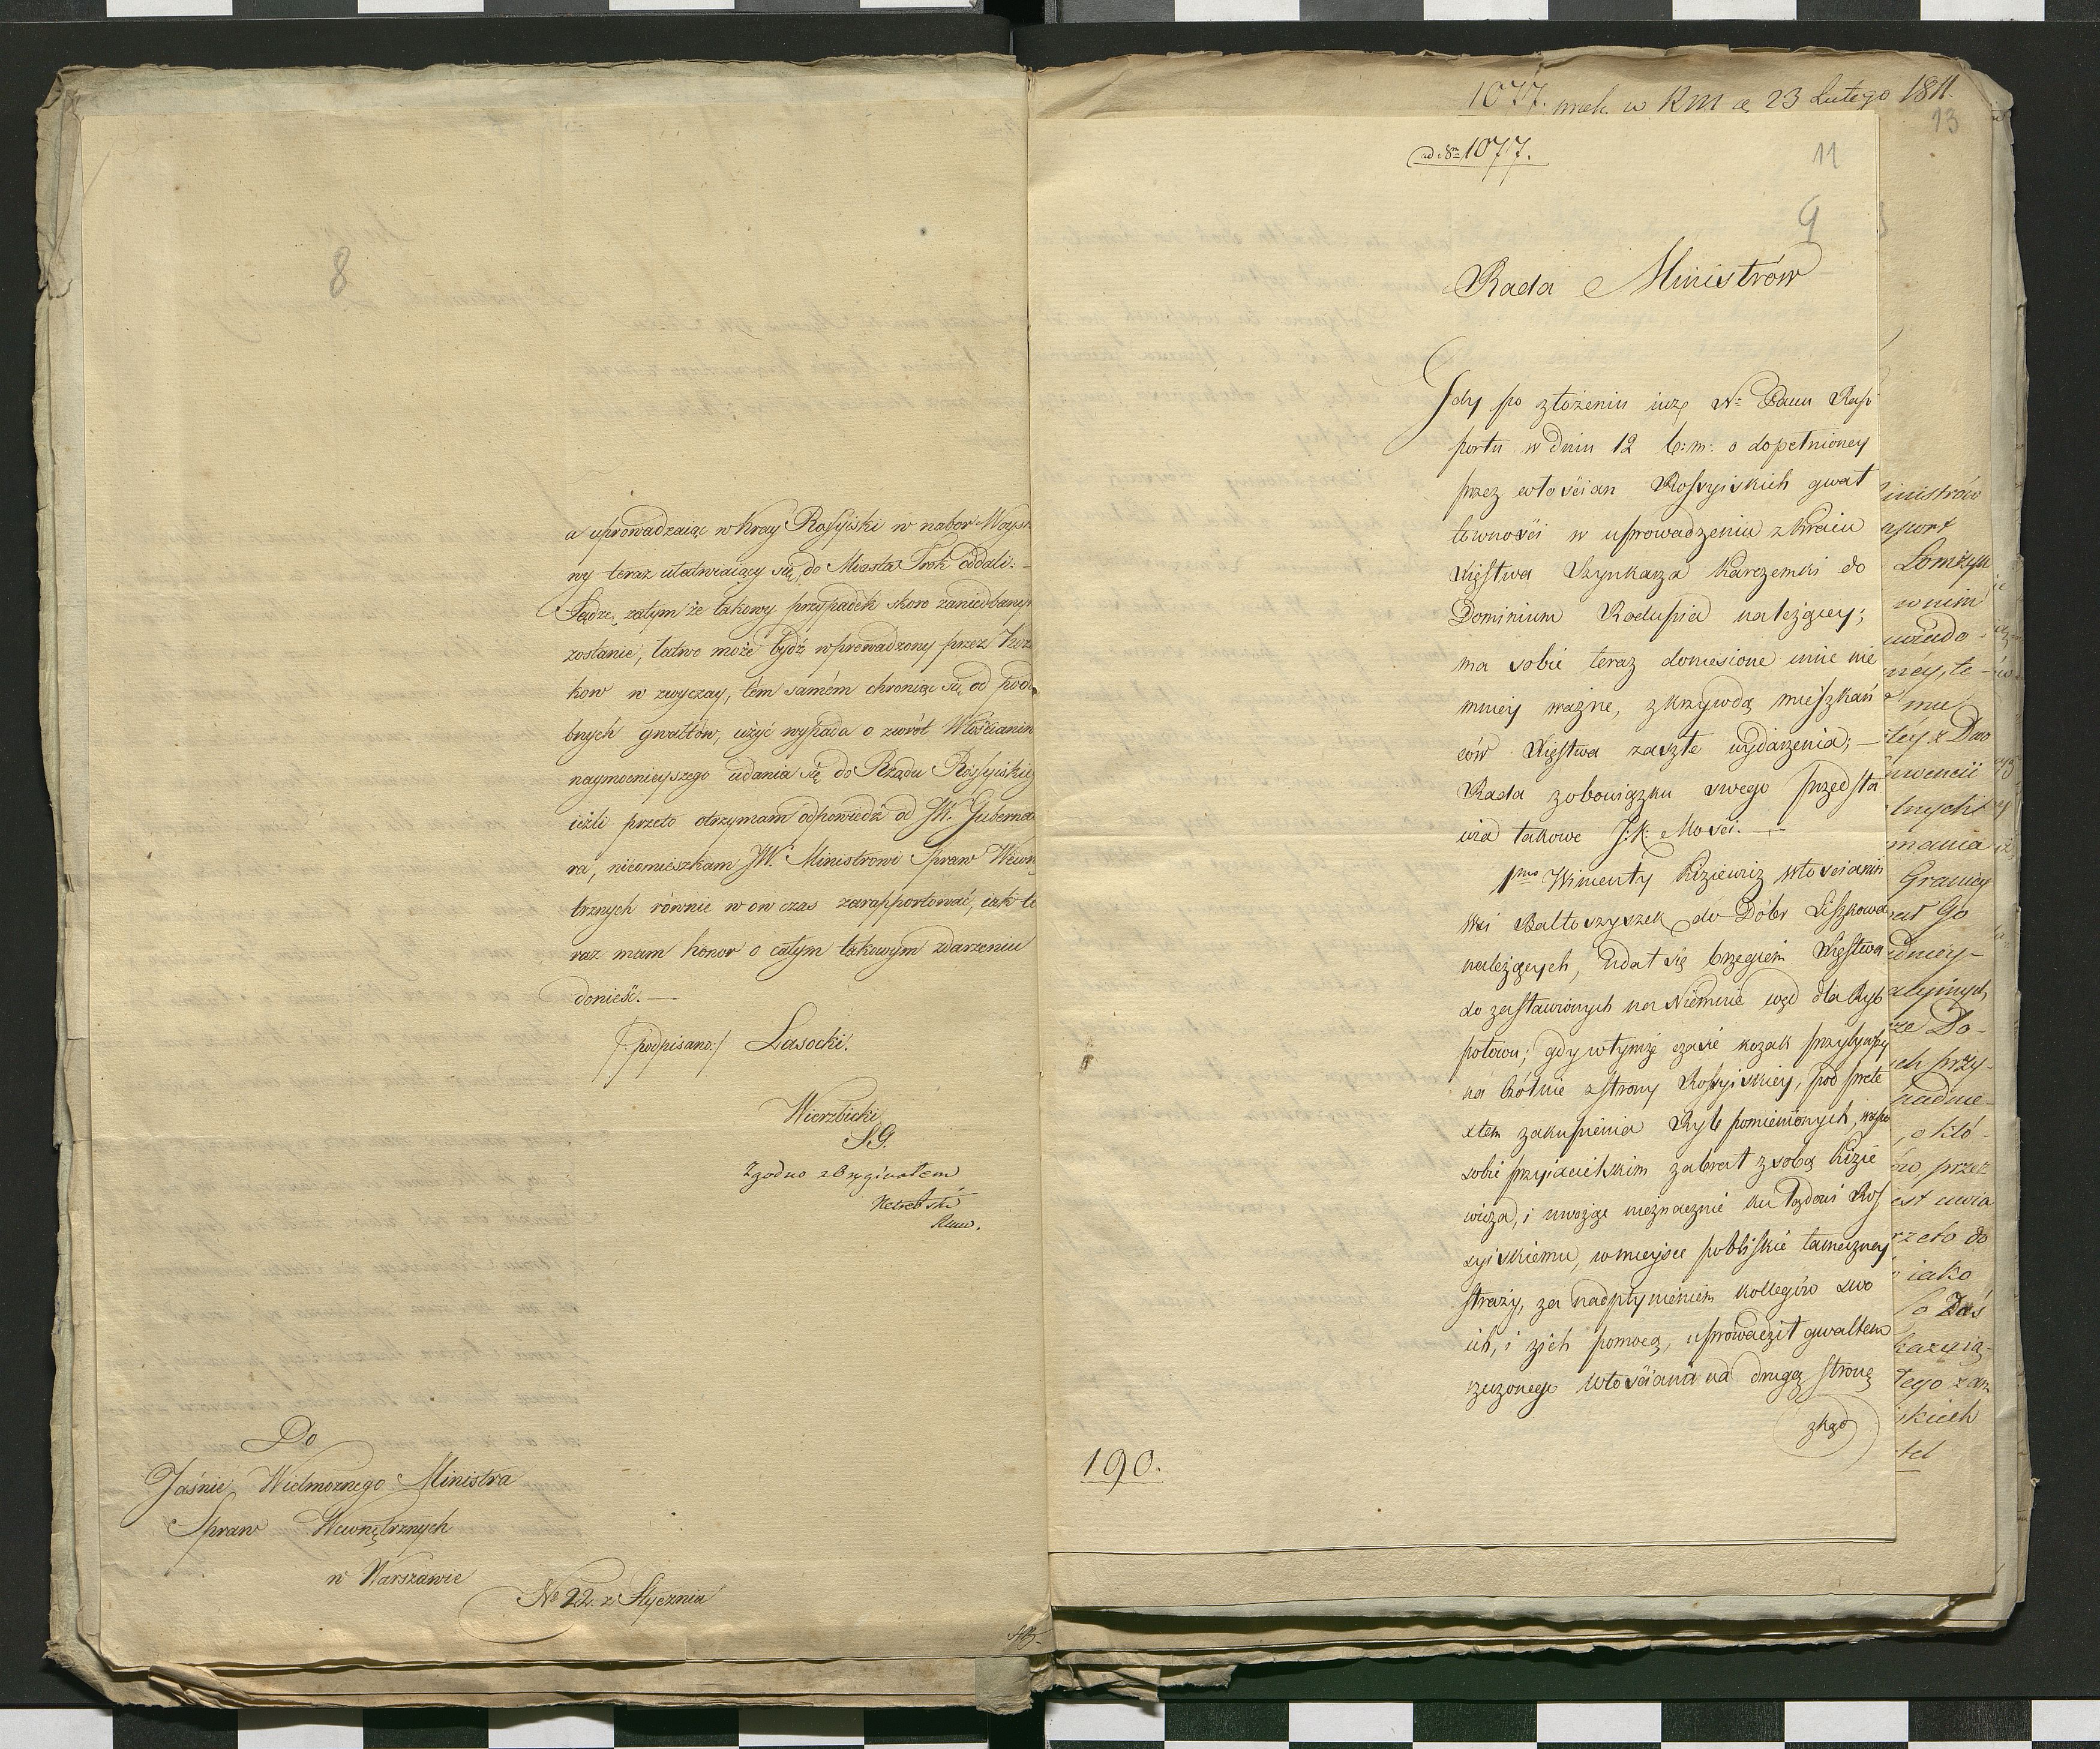 8
a uprowadzaiąc w Kray Rossyiski w nabor Woysk
ny teraz ułatwiaiący się, do Miasta Trok oddali:
Sądzę zatym że takowy przypadek skoro zaniedbanym
zostanie, łatwo może bydź wprowadzony przez Koza
kow w zwyczay, tém samém chroniąc się od podo
bnych gwałtów, użyć wypada o zwrót Włościanina
naymocnieyszego udania się do Rządu Rossyiskieg
ieżli przeto otrzymam odpowiedź od JW. Guberna
ra, nieomieszkam JW. Ministrowi Spraw Wewn
trznych równie w ow czas zarapportować, iak te
raz mam honor o całym takowym zdarzeniu
donieść. —
/:podpisano:/ Lasocki.
Wierzbicki
S.G.
Zgodno z Oryginałem
Do
Jaśnie Wielmożnego Ministra
Spraw Wewnętrznych
w Warszawie
No 22. z Stycznia
1077. w RM d 23 Lutego 1811.
13
ad Nm 1077.
11
9
Rada Ministrów
Gdy po złożeniu iuż N. Panu Rap
portu w dniu 12 b:m: o dopełnioney
przez włościan Rossyiskich gwał
towności w uprowadzeniu z kraiu
Xięstwa Szynkarza karczemki do
Dominium Radupia należącey;
ma sobie teraz doniesione inne nie
mniey ważne, z krzywdą mieszkań
ców Xięstwa zaszłe wydarzenia; —
Rada z obowiązku swego przedsta
wia takowe J:K: Mości. —
1mo Wincenty Kiziewicz włościanin
wsi Baltoszyszek do Dóbr Liszkowa
należących, udał się brzegiem Xięstwa
do zastawionych na Niemnie węd dla Ryb
połowu; gdy w tymże czasie kozak przybywszy
na czółnie z strony Rossyiskiey, pod prete
xtem zakupienia Ryb pomienionych, w spo
sobie przyiacielskim zabrał z sobą Kizie
wicza, i uwożąc nieznacznie ku lądowi Ros
syiskiemu, w mieysce pobliskie tameczney
straży, za nadpłynieniem kollegów swo
ich, i z ich pomocą, uprowadził gwałtem
rzeczonego włościana na drugą stronę
zkąd
190.
inistrów
aport
Łomżyń
w nim
mu
Granicy
przez
rzeto do
iako
skich
tel